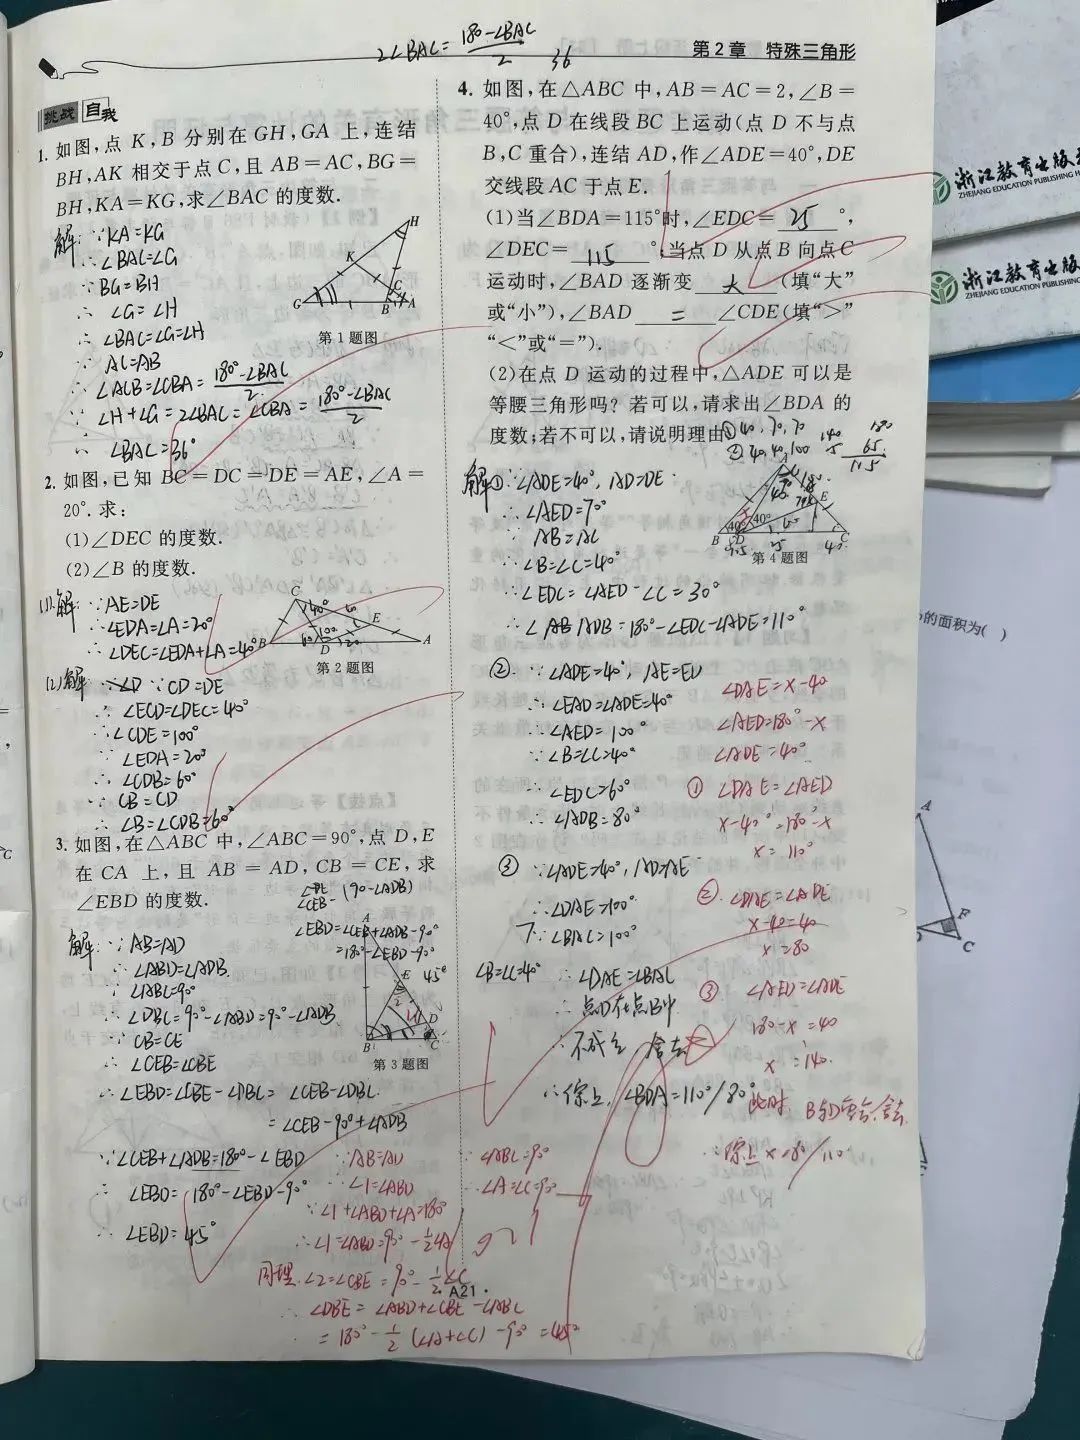 2∠BAC= 180°-∠BAC / 2 36
第2章 特殊三角形
挑战 自我
1. 如图,点 K,B 分别在 GH,GA 上,连结
BH,AK 相交于点 C,且 AB=AC,BG=
BH,KA=KG,求∠BAC 的度数.
解: ∵KA=KG
∴∠BAC=∠G
∵BG=BH
∴ ∠G=∠H
∴ ∠BAC=∠G=∠H
∵ AC=AB
∴ ∠ACB=∠CBA= 180°-∠BAC / 2
∵ ∠H+∠G=2∠BAC=∠CBA= 180°-∠BAC / 2
∴ ∠BAC=36°
H
K
C
G
B
A
第1题图
2. 如图,已知 BC=DC=DE=AE,∠A=
20°. 求:
(1)∠DEC 的度数.
(2)∠B 的度数.
(1)解: ∵AE=DE
∴∠EDA=∠A=20°
∴∠DEC=∠EDA+∠A=40°
C
E
B
D
A
第2题图
(2)解: ∵CD=DE
∴ ∠ECD=∠DEC=40°
∴ ∠CDE=100°
∵ ∠EDA=20°
∴ ∠CDB=60°
∵ CB=CD
∴ ∠B=∠CDB=60°
3. 如图,在△ABC 中,∠ABC=90°,点 D,E
在 CA 上,且 AB=AD,CB=CE,求
∠EBD 的度数.
∠CEB-(90-∠ADB)
∠EBD=∠CEB+∠ADB-90°
=180°-∠EBD-90°
45°
解: ∵AB=AD
∴ ∠ABD=∠ADB.
∵ ∠ABC=90°
∴ ∠DBC=90°-∠ABD=90°-∠ADB
∵ CB=CE
∴ ∠CEB=∠CBE
∴ ∠EBD=∠CBE-∠DBC= ∠CEB-∠DBC
=∠CEB-90°+∠ADB
A
E
2
1
D
B
C
第3题图
∵∠CEB+∠ADB=180°-∠EBD
∴ ∠EBD= 180°-∠EBD-90°
∴ ∠EBD=45°
∵AB=AD
∴∠1=∠ABD
∵∠1+∠ABD+∠A=180°
∴∠1=∠ABD=90°-½∠A
∵∠ABC=90°
∴∠A+∠C=90°
同理.∠2=∠CBE=90°-½∠C
∴ ∠DBE= ∠ABD+∠CBE-∠ABC
=180°-½(∠A+∠C)-90°=45°
A21
4. 如图,在△ABC 中,AB=AC=2,∠B=
40°,点 D 在线段 BC 上运动(点 D 不与点
B,C 重合),连结 AD,作∠ADE=40°,DE
交线段 AC 于点 E.
(1)当∠BDA=115°时,∠EDC= 25 °,
∠DEC= 115 °;当点 D 从点 B 向点 C
运动时,∠BAD 逐渐变 大 (填“大”
或“小”),∠BAD = ∠CDE(填“>”
“<”或“=”).
(2)在点 D 运动的过程中,△ADE 可以是
等腰三角形吗? 若可以,请求出∠BDA 的
度数;若不可以,请说明理由.
①40,70,70
②40,40,100
180
65
115
解① ∵∠ADE=40°, AD=DE
∴ ∠AED=70°
∵ AB=AC
∴ ∠B=∠C=40°
∴ ∠EDC=∠AED-∠C=30°
∴ ∠ADB=180°-∠EDC-∠ADE=110°
第4题图
② ∵ ∠ADE=40°, AE=ED
∴ ∠EAD=∠ADE=40°
∴ ∠AED=100°
∵ ∠B=∠C=40°
∴ ∠EDC=60°
∴ ∠ADB=80°
③ ∵∠ADE=40°, AD=AE
∴∠DAE=100°
∵∠BAC=100°
∠B=∠C=40°
∴ ∠DAE=∠BAC
∴ 点D在点B中
∴ 不成立 舍去
∴综上, ∠BDA=110°/80°
∠DAE=x-40
∠AED=180°-x
∠ADE=40°
① ∠DAE=∠AED
x-40°=180°-x
x=110°
②. ∠DAE=∠ADE
x-40=40
x=80
③ ∠AED=∠ADE
180-x=40
x=140.
此时, B与D重合,舍去.
∴综上 x=80/110°
浙江教育出版
ZHEJIANG EDUCATION PUBLISHING H
浙江教育出版
ZHEJIANG EDUCATION PUBLISHING
的面积为( )
A
F
C